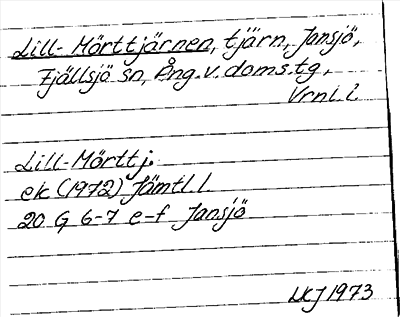 Lill-Mörttjärnen, tjärn, Jansjö,
Fjällsjö sn, Ång. v. doms.tg,
Vrnl. l.
Lill-Mörttj.
ek (1972) Jämtl l
20 G 6-7 e-f Jansjö
LKJ 1973